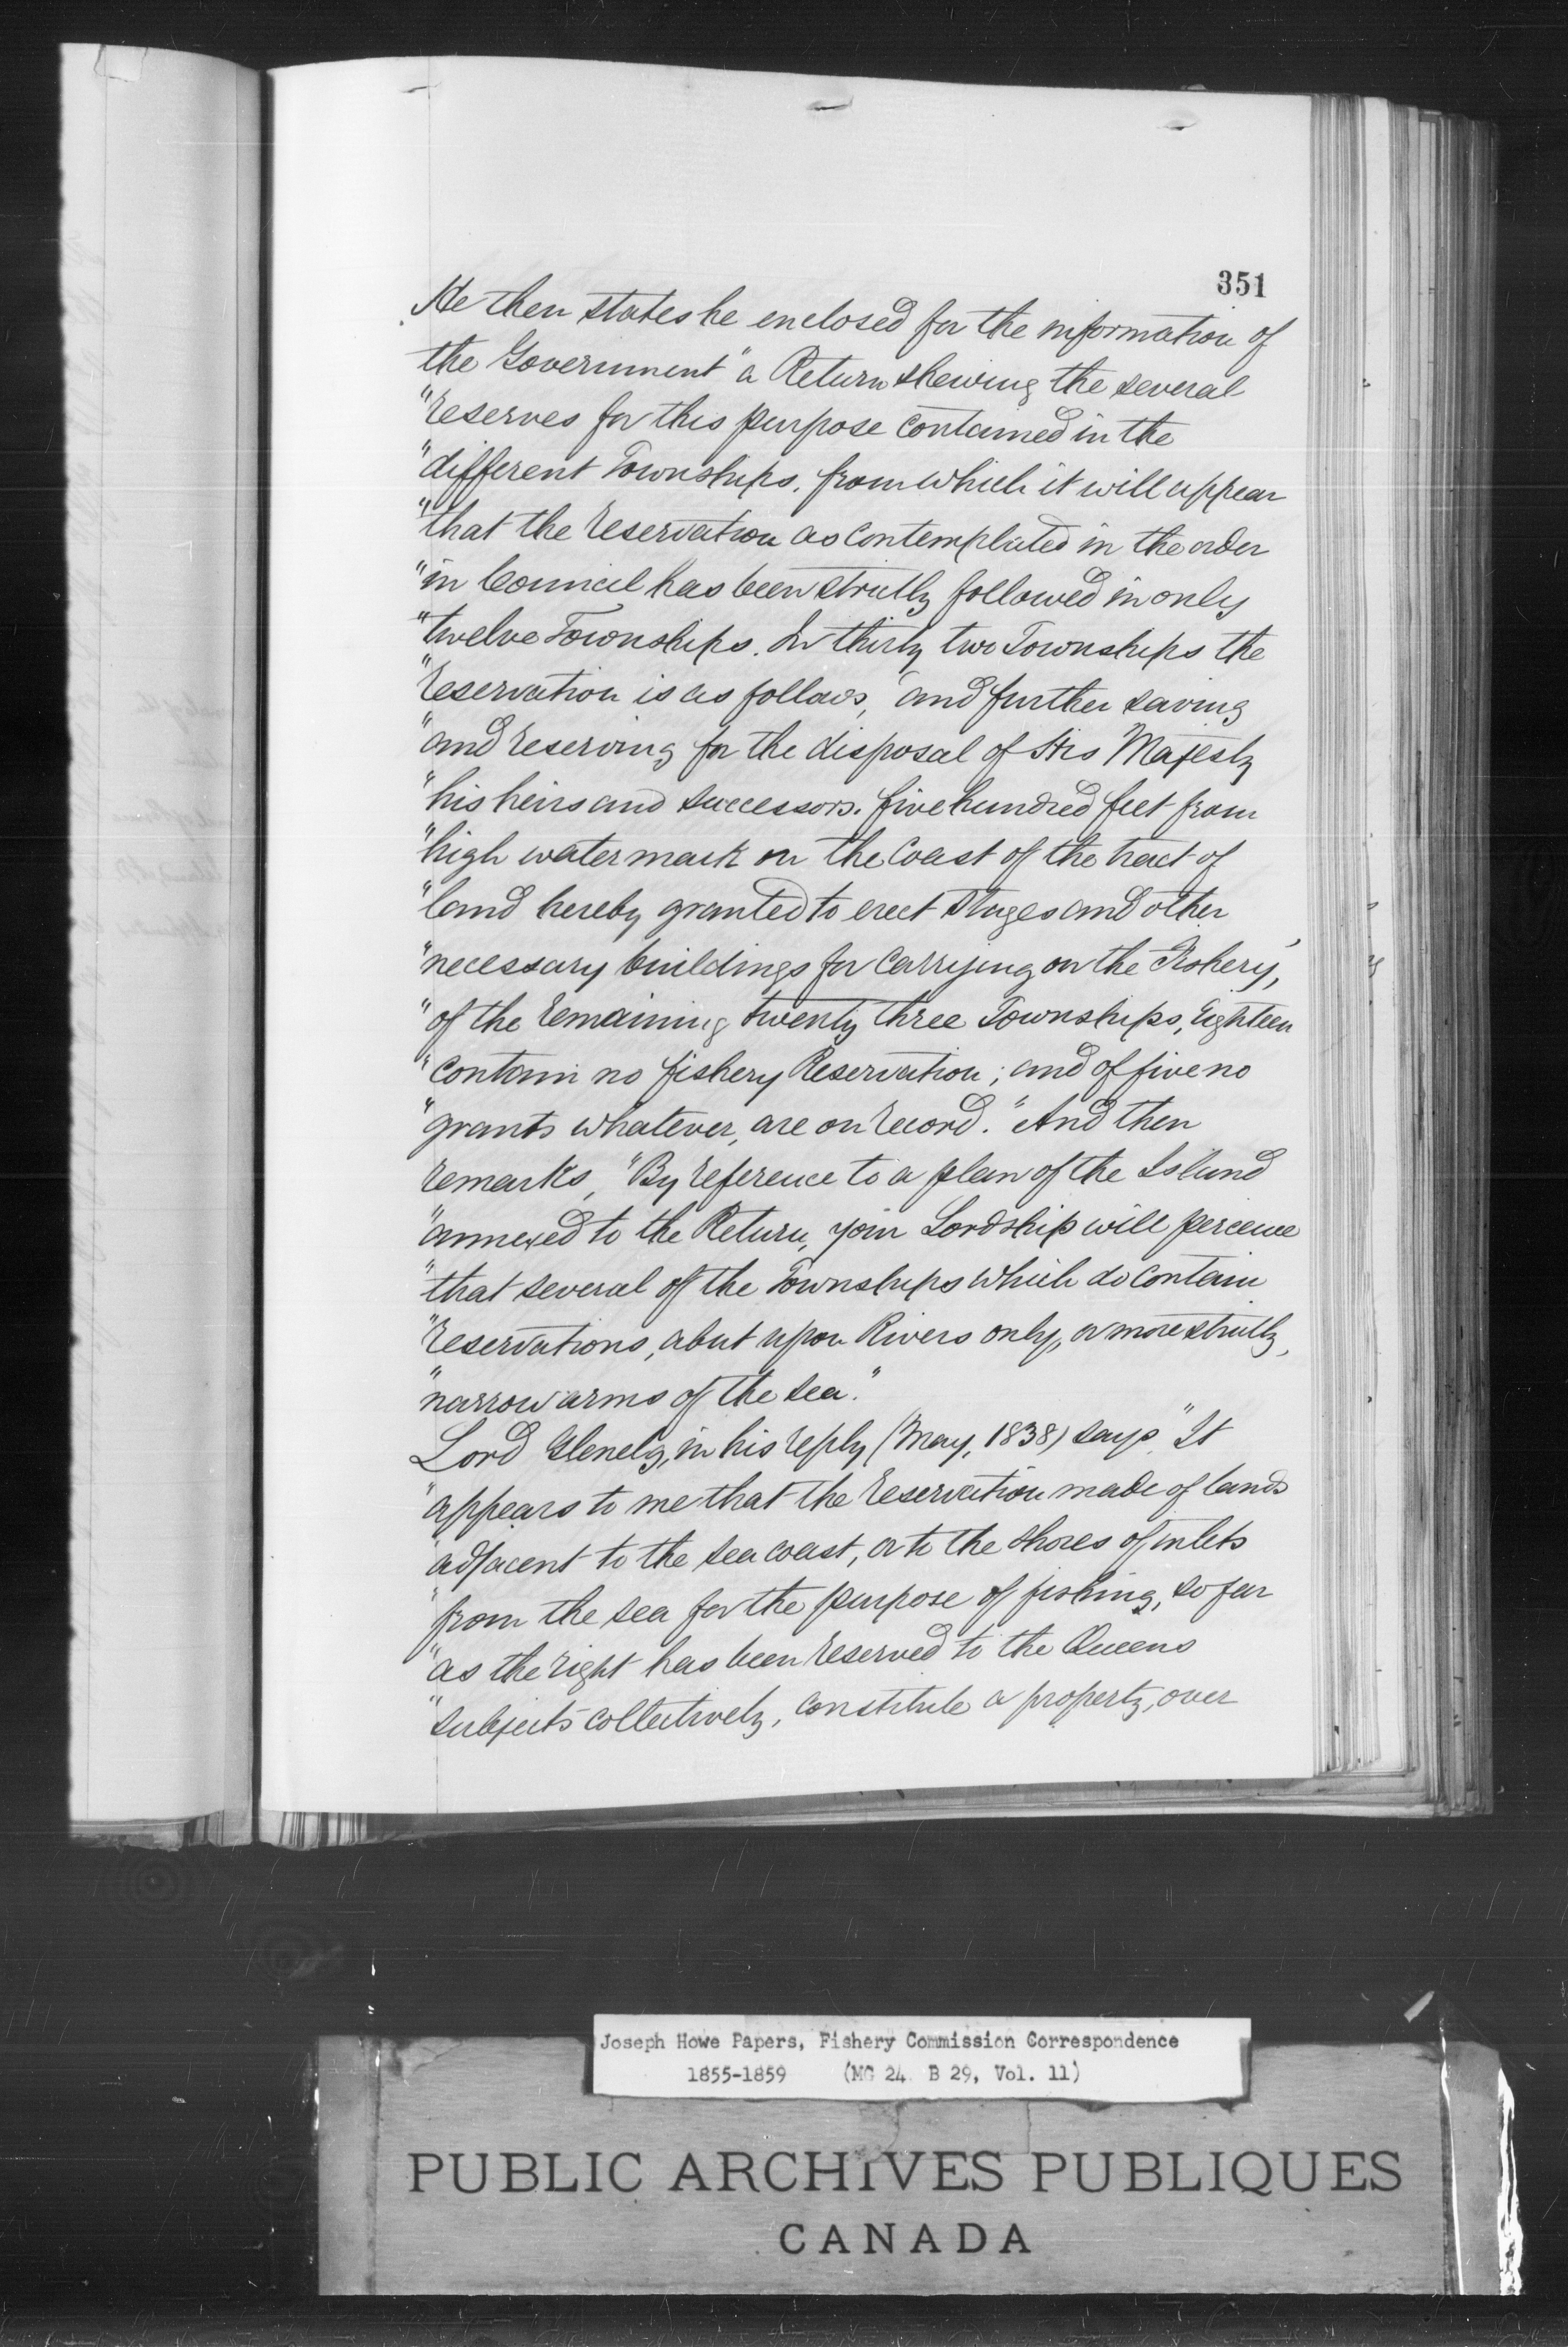 351
He then states he enclosed for the information of
the Government "a Return shewing the several
"reserves for this purpose contained in the
"different Townships, from which it will appear
"that the reservation as contemplated in the order
"in Council has been strictly followed in only
"twelve Townships. In thirty two Townships the
"reservation is as follows, "and further saving
"and reserving for the disposal of His Majesty
"his heirs and successors. five hundred feet from
"high water mark on the Coast of the tract of
"land hereby granted to erect Stages and other
"necessary buildings for Carrying on the Fishery,'
"of the remaining twenty three Townships, Eighteen
"contain no fishery Reservation; and of five no
"grants whatever, are on record." And then
remarks, "By reference to a plan of the Island
"annexed to the Return, your Lordship will perceive
"that several of the Townships which do contain
"reservations, abut upon Rivers only, or more strictly,
"narrow arms of the sea."
Lord Glenelg, in his reply (May, 1838) says "It
"appears to me that the reservation made of lands
"adjacent to the sea coast, or to the shores of inlets
"from the sea for the purpose of fishing, so far
"as the right has been reserved to the Queens
"subjects collectively, constitute a property, over
Joseph Howe Papers, Fishery Commission Correspondence
1855-1859 (MG 24 B 29, Vol. 11)
PUBLIC ARCHIVES PUBLIQUES
CANADA